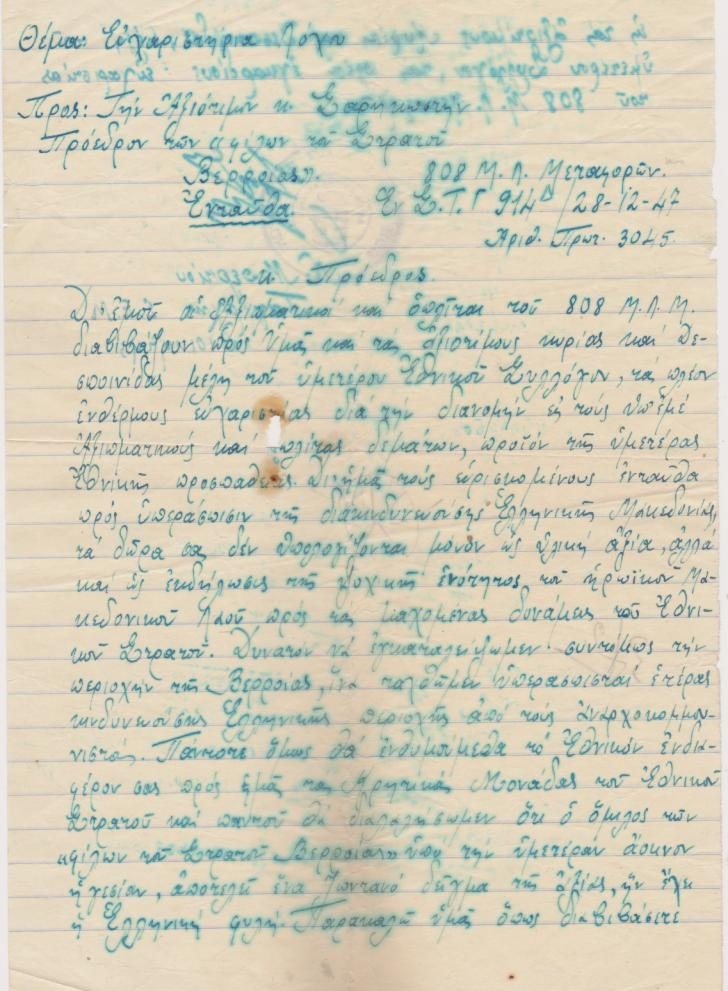 Θέμα: Εὐχαριστήρια Λόγου
Πρός: Τήν Ἀξιότιμον κ.
Πρόεδρον τῶν φίλων τοῦ Στρατοῦ
Βερροίας». 808 Μ.Λ. Μεταφορῶν.
Ἐνταῦθα. Ἐν Σ.Τ.Γ 914Δ/28-12-47
Ἀριθ. Πρωτ. 3045.
κ. Πρόεδρος.
Δι' ἐμοῦ οἱ Ἀξιωματικοί καί ὁπλῖται τοῦ 808 Μ.Λ.Μ.
διαβιβάζουν πρός Ὑμᾶς καί τάς ἀξιοτίμους κυρίας καί Δε-
σποινίδας μέλη τοῦ ὑμετέρου Ἐθνικοῦ Συλλόγου, τάς πλέον
ἐνθέρμους εὐχαριστίας διά τήν διανομήν εἰς τούς ὑπ' ἐμέ
Ἀξιωματικούς καί ὁπλίτας δεμάτων, προϊόν τῆς ὑμετέρας
Ἐθνικῆς προσπαθείας. Δι' ἡμᾶς τούς εὑρισκομένους ἐνταῦθα
πρός ὑπεράσπισιν τῆς διακινδυνευούσης Ἑλληνικῆς Μακεδονίας,
τά δῶρα σας δέν ὑπολογίζονται μόνον ὡς ὑλική ἀξία, ἀλλά
καί ὡς ἐκδήλωσις τῆς ψυχικῆς ἑνότητος τοῦ ἡρωϊκοῦ Μα-
κεδονικοῦ Λαοῦ πρός τάς μαχομένας δυνάμεις τοῦ Ἐθνι-
κοῦ Στρατοῦ. Δυνατόν νά ἐγκαταλείψωμεν συντόμως τήν
περιοχήν τῆς Βερροίας, ἵνα ταχθῶμεν ὑπερασπισταί ἑτέρας
κινδυνευούσης Ἑλληνικῆς περιοχῆς ἀπό τούς ἀναρχοκομμου-
νιστάς. Πάντοτε ὅμως θά ἐνθυμούμεθα τό Ἐθνικόν ἐνδια-
φέρον σας πρός ἡμᾶς τάς Μονάδας τοῦ Ἐθνικοῦ
Στρατοῦ καί παντοῦ θά διαλαλήσωμεν ὅτι ὁ ὅμιλος τῶν
«φίλων τοῦ Στρατοῦ Βερροίας» ὑπό τήν ὑμετέραν ἄοκνον
ἡγεσίαν, ἀποτελεῖ ἕνα ζωντανό δεῖγμα τῆς ἀξίας, ἥν ἔχει
ἡ Ἑλληνική φυλή. Παρακαλῶ ὑμᾶς ὅπως διαβιβάσητε